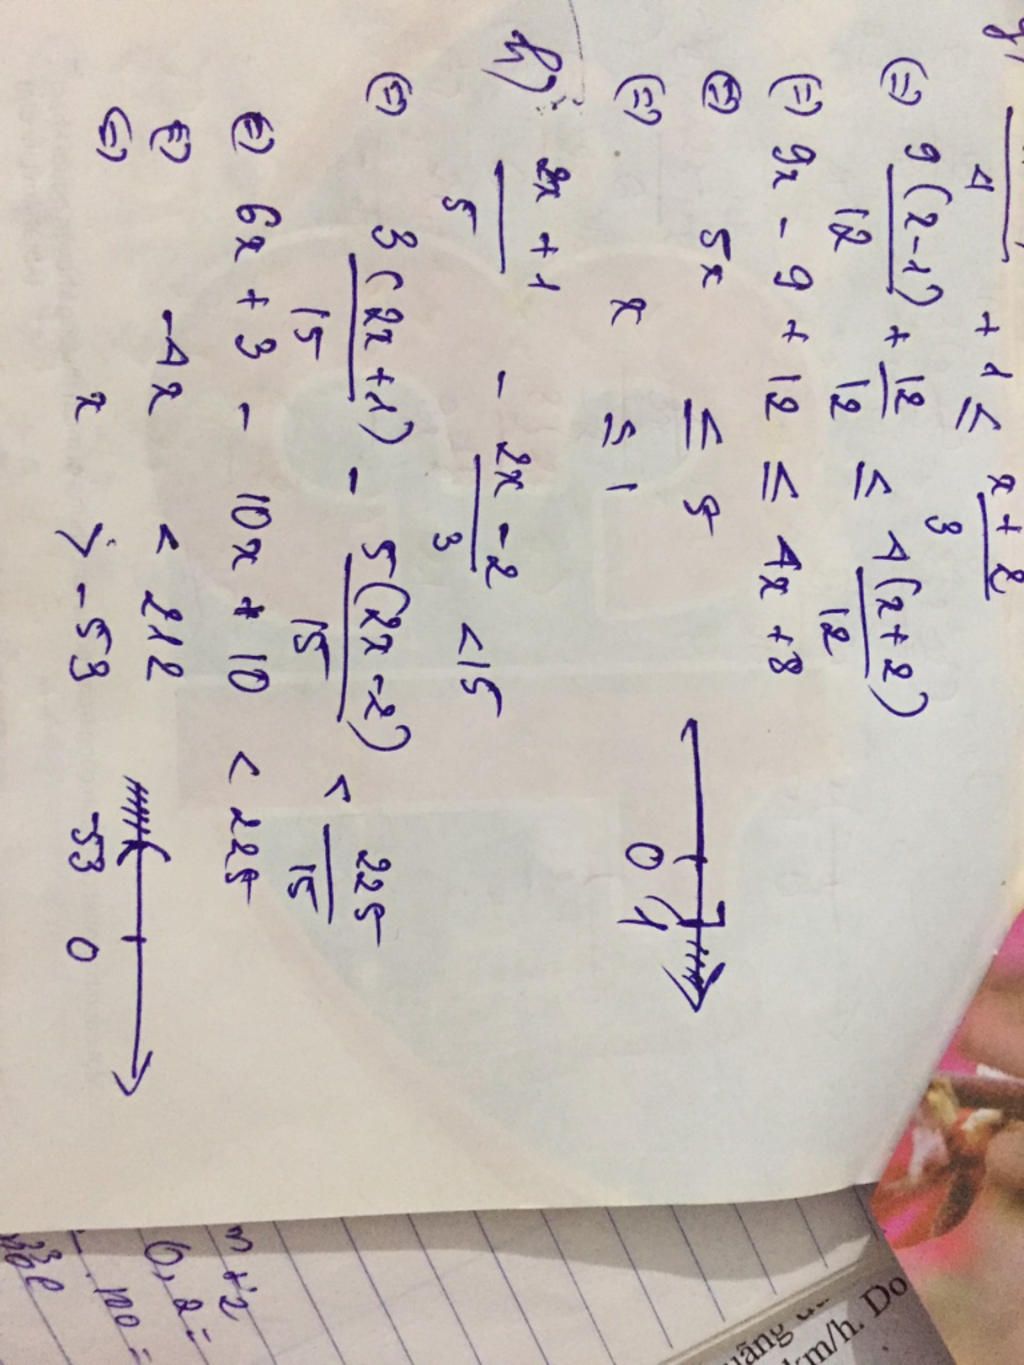 g)
4 + 1 ≤ x + 2 / 3
(=) 9(x-1) / 12 + 12 / 12 ≤ 4(x+2) / 12
(=) 9x - 9 + 12 ≤ 4x + 8
(=) 5x ≤ 5
(=) x ≤ 1
0 1
h) 2x + 1 / 5 - 2x - 2 / 3 < 15
(=) 3(2x+1) / 15 - 5(2x-2) / 15 < 225 / 15
(=) 6x + 3 - 10x + 10 < 225
(=) -4x < 212
(=) x > -53
-53 0
km/h. Do